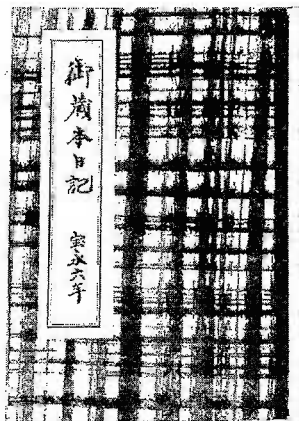 御蔵本日記 宝永六年